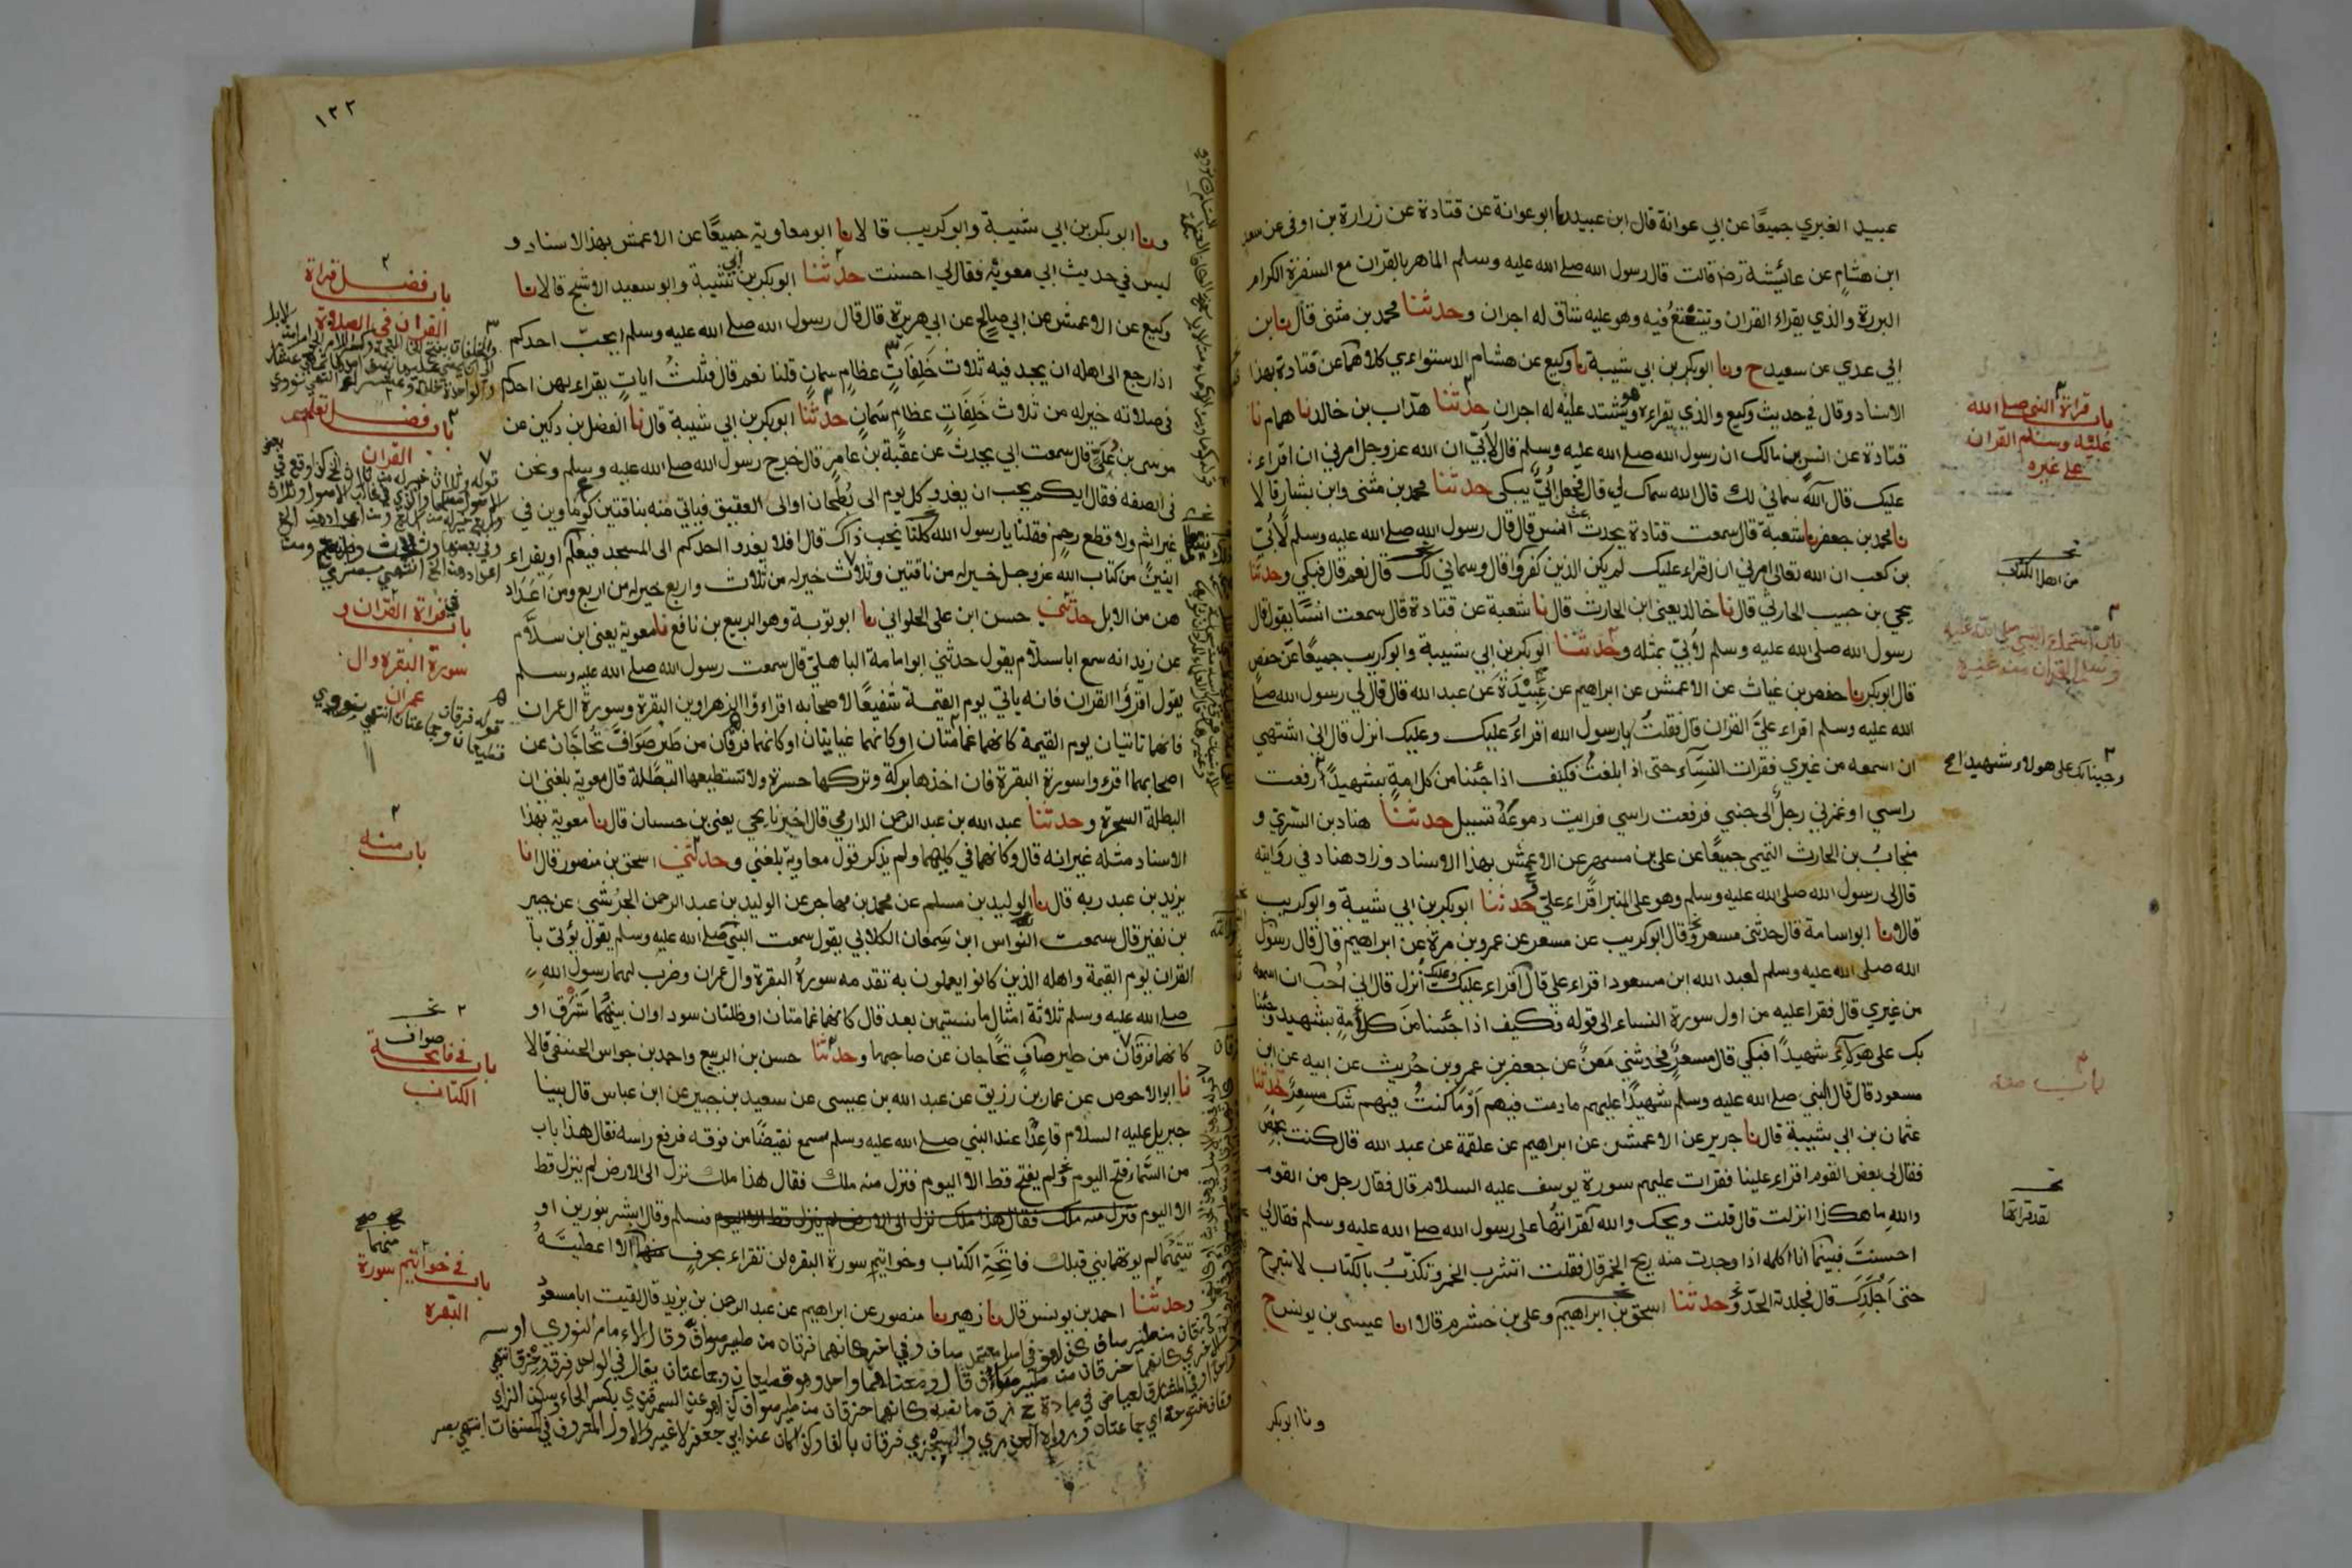 عبيد الغبري جميعًا عن ابي عوانة قال ابن عبيد نا ابوعوانة عن قتادة عن زرارة بن اوفى عن سعد
ابن هشام عن عائشة رضـ قالت قال رسول الله صلے الله عليه وسلم الماهر بالقران مع السفرة الكرام
البررة والذي يقراء القران ويتتعتع فيه وهو عليه شاق له اجران وحدثنا محمد بن مثنى قال نا ابن
ابي عدي عن سعيد ح ونا ابوبكر بن ابي شيبة نا وكيع عن هشام الدستوائي كلاهما عن قتادة بهذا
الاسناد وقال في حديث وكيع والذي يقراءه وهو يشتد عليه له اجران حدثنا هدّاب بن خالد نا همام نا
قتادة عن انس بن مالك ان رسول الله صلے الله عليه وسلم قال لابيّ ان الله عز وجل امرني ان اقراء
عليك قال آلله سماني لك قال الله سماك لي قال فجعل ابيّ يبكى حدثنا محمد بن مثنى وابن بشار قالا
نا محمد بن جعفر نا شعبة قال سمعت قتادة يحدث عن انس قال قال رسول الله صلے الله عليه وسلم لابيّ
بن كعب ان الله تعالى امرني ان اقراء عليك لم يكن الذين كفروا قال وسماني لك قال نعم قال فبكي وحدثنا
يحي بن حبيب الحارثي قال نا خالد يعني ابن الحارث قال نا شعبة عن قتادة قال سمعت انسًا يقول قال
رسول الله صلى الله عليه وسلم لابيّ بمثله وحدثنا ابوبكر بن ابي شيبة وابوكريب جميعًا عن حفص
قال ابوبكر نا حفص بن غياث عن الاعمش عن ابراهيم عن عبيدة عن عبد الله قال قال لي رسول الله صلے
الله عليه وسلم اقراء عليّ القران قال فقلت يا رسول الله اقراء عليك وعليك انزل قال اني اشتهي
ان اسمعه من غيري فقرات النساء حتى اذا بلغت فكيف اذا جئنا من كل امة بشهيد رفعت
راسي او غمزني رجل الى جنبي فرفعت راسي فرايت دموعه تسيل حدثنا هناد بن السريّ و
منجاب بن الحارث التميمي جميعًا عن علي بن مسهر عن الاعمش بهذا الاسناد وزاد هناد في روايته
قال لي رسول الله صلى الله عليه وسلم وهو على المنبر اقراء عليّ حدثنا ابوبكر بن ابي شيبة وابوكريب
قالا نا ابواسامة قال حدثني مسعر وقال ابوكريب عن مسعر عن عمرو بن مرة عن ابراهيم قال قال رسول
الله صلى الله عليه وسلم لعبد الله ابن مسعود اقراء علي قال اقراء عليك وعليك انزل قال اني احب ان اسمعه
من غيري قال فقرا عليه من اول سورة النساء الى قوله فكيف اذا جئنا من كل امة بشهيد وجئنا
بك على هؤلاء شهيدًا فبكي قال مسعر فحدثني معن عن جعفر بن عمرو بن حريث عن ابيه عن ابن
مسعود قال قال النبي صلے الله عليه وسلم شهيدًا عليهم مادمت فيهم او ما كنت فيهم شك مسعر حدثنا
عثمان بن ابي شيبة قال نا جرير عن الاعمش عن ابراهيم عن علقمة عن عبد الله قال كنت بحمص
فقال لي بعض القوم اقراء علينا فقرات عليهم سورة يوسف عليه السلام قال فقال رجل من القوم
والله ما هكذا انزلت قال قلت ويحك والله لقد قراتها على رسول الله صلے الله عليه وسلم فقال لي
احسنت فبينما انا اكلمه اذا وجدت منه ريح الخمر قال فقلت اتشرب الخمر وتكذب بالكتاب لا تبرح
حتى اجلدك قال فجلدته الحدّ وحدثنا اسحق بن ابراهيم وعلي بن خشرم قالا انا عيسى بن يونس ح
ونا ابوبكر
باب قراءة النبي صلے الله
عليه وسلم القران
على غيره
من اهل الكتاب
باب استماع النبي صلى الله عليه
وسلم القران من غيره
وجئنا بك على هولاء شهيدا
باب منه
لقد قراتها
١٣٢
ونا ابوبكر بن ابي شيبة وابوكريب قالا نا ابومعاوية جميعًا عن الاعمش بهذا الاسناد و
ليس في حديث ابي معوية فقال لي احسنت حدثنا ابوبكر بن ابي شيبة وابوسعيد الاشج قالا نا
وكيع عن الاعمش عن ابي صالح عن ابي هريرة قال قال رسول الله صلے الله عليه وسلم ايحبّ احدكم
اذا رجع الى اهله ان يجد فيه ثلاث خلفات عظام سمان قلنا نعم قال فثلث ايات يقراء بهن احدكم
في صلاته خير له من ثلاث خلفات عظام سمان حدثنا ابوبكر بن ابي شيبة قال نا الفضل بن دكين عن
موسى بن عُلَيّ قال سمعت ابي يحدث عن عقبة بن عامر قال خرج رسول الله صلے الله عليه وسلم ونحن
في الصفه فقال ايكم يحب ان يغدو كل يوم الى بطحان او الى العقيق فياتي منه بناقتين كوماوين في
غير اثم ولا قطع رحم فقلنا يا رسول الله كلنا يحب ذاك قال افلا يغدوا احدكم الى المسجد فيعلم او يقراء
ايتين من كتاب الله عز وجل خير له من ناقتين وثلاث خير له من ثلاث واربع خير له من اربع ومن اعداد
هن من الابل حدثني حسن ابن علي الحلواني نا ابوتوبة وهو الربيع بن نافع نا معوية يعني ابن سلّام
عن زيد انه سمع ابا سلام يقول حدثني ابوامامة الباهليّ قال سمعت رسول الله صلے الله عليه وسلم
يقول اقرؤا القران فانه ياتي يوم القيمة شفيعًا لاصحابه اقراءوا الزهراوين البقرة وسورة ال عمران
فانهما تاتيان يوم القيمة كانهما غمامتان او كانهما غيايتان او كانهما فرقان من طير صوافّ تحاجّان عن
اصحابهما اقرءوا سورة البقرة فان اخذها بركة وتركها حسرة ولا تستطيعها البطلة قال معوية بلغني ان
البطلة السحرة وحدثنا عبد الله بن عبد الرحمن الدارمي قال اخبرنا يحي يعني بن حسان قال نا معوية بهذا
الاسناد مثله غير انه قال وكانهما في كليهما ولم يذكر قول معاوية بلغني وحدثني اسحق بن منصور قال انا
يزيد بن عبد ربه قال نا الوليد بن مسلم عن محمد بن مهاجر عن الوليد بن عبد الرحمن الجرشي عن جبير
بن نفير قال سمعت النواس ابن سمعان الكلابي يقول سمعت النبي صلے الله عليه وسلم يقول يؤتى با
القران يوم القيمة واهله الذين كانوا يعملون به تقدمه سورة البقرة وال عمران وضرب لهما رسول الله
صلے الله عليه وسلم ثلاثة امثال ما نسيتهن بعد قال كانهما غمامتان او ظلتان سود اوان بينهما شرق او
كانهما فرقان من طير صاف تحاجان عن صاحبهما وحدثنا حسن بن الربيع واحمد بن جواس الحنفي قالا
نا ابوالاحوص عن عمار بن رزيق عن عبد الله بن عيسى عن سعيد بن جبير عن ابن عباس قال بينا
جبريل عليه السلام قاعدًا عند النبي صلے الله عليه وسلم سمع نقيضًا من فوقه فرفع راسه فقال هذا باب
من السماء فتح اليوم ولم يفتح قط الا اليوم فنزل منه ملك فقال هذا ملك نزل الى الارض لم ينزل قط
الا اليوم فنزل منه ملك فقال هذا ملك نزل الى الارض لم ينزل قط الا اليوم فسلم وقال ابشر بنورين او
تيتهما لم يوتهما نبي قبلك فاتحة الكتاب وخواتيم سورة البقره لن تقراء بحرف منها الا اعطيته
وحدثنا احمد بن يونس قال نا زهير نا منصور عن ابراهيم عن عبد الرحمن بن يزيد قال لقيت ابا مسعود
باب فضل قراة
القران في الصلاة
باب فضل تعلم
القران
باب في قراة القران و
سورة البقره وال
عمران
قوله فرقان
قطيعان وجماعتان انتهى نووي
باب منه
صواف
باب في فاتحة
الكتاب
منهما
باب في خواتيم سورة
البقره